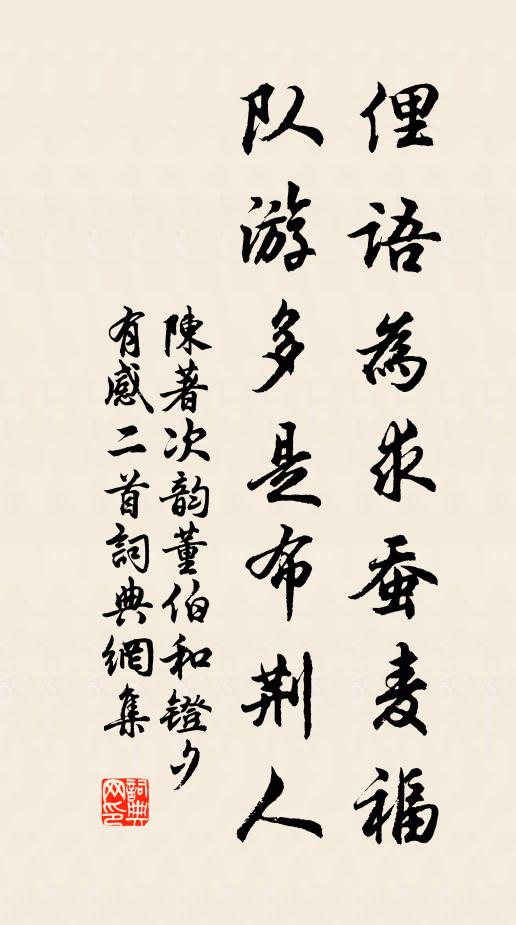 俚語為求蚕麦福
队游多是布荆人
陳著次韵董伯和镫夕
有感二首詞典網集
詞典网印